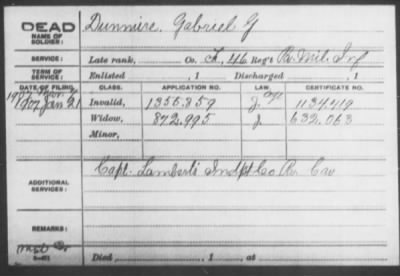 DEAD Dunmire, Gabriel G
NAME OF SOLDIER:
SERVICE: Late rank, Co. F, 46 Reg't Pa. Mil. Inf
TERM OF SERVICE: Enlisted , 1 Discharged , 1
DATE OF FILING. CLASS. APPLICATION NO. LAW. CERTIFICATE NO.
Invalid, 1355.859 1134.419
1907 Jan 21 Widow, 872.995 632.063
Minor,
ADDITIONAL SERVICES: Capt. Lambert's Indpt Co Pa. Cav
REMARKS:
Died , 1 , at